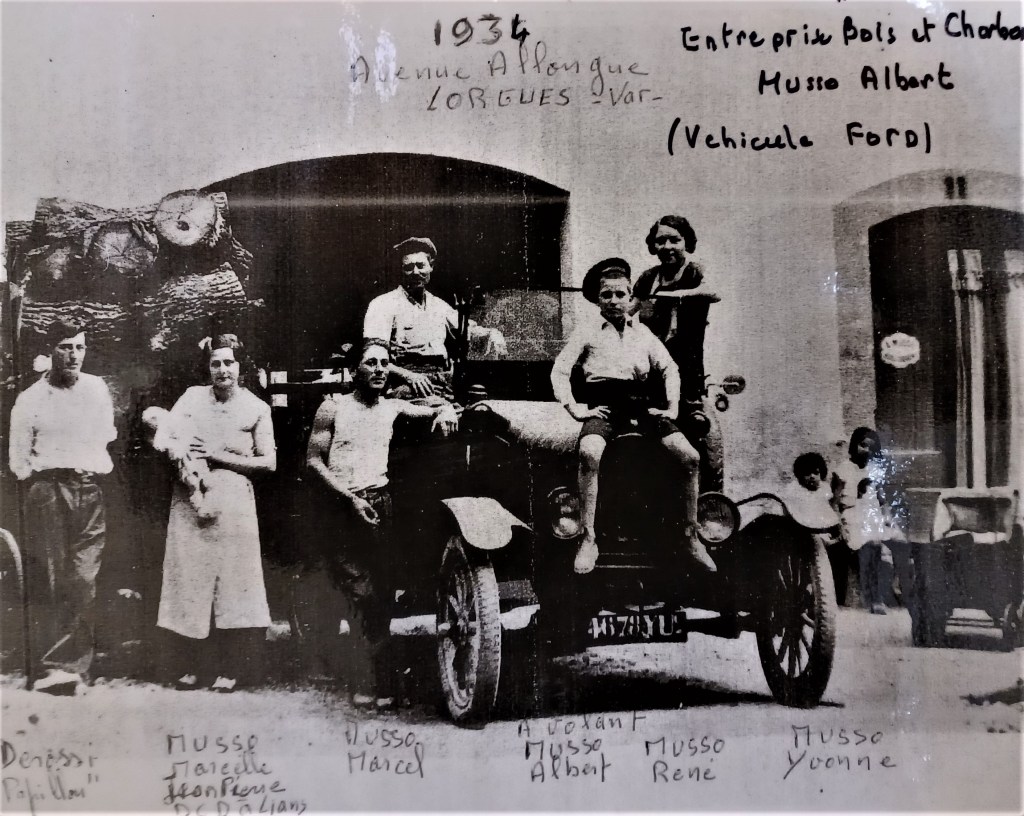 1934
Avenue Allongue
LORGUES -Var-
Entreprise Bois et Charbon
Musso Albert
(Vehicule FORD)
4678YU
Musso
Marcelle
Jean Pierre
Musso
Marcel
A volant
Musso
Albert
Musso
René
Musso
Yvonne